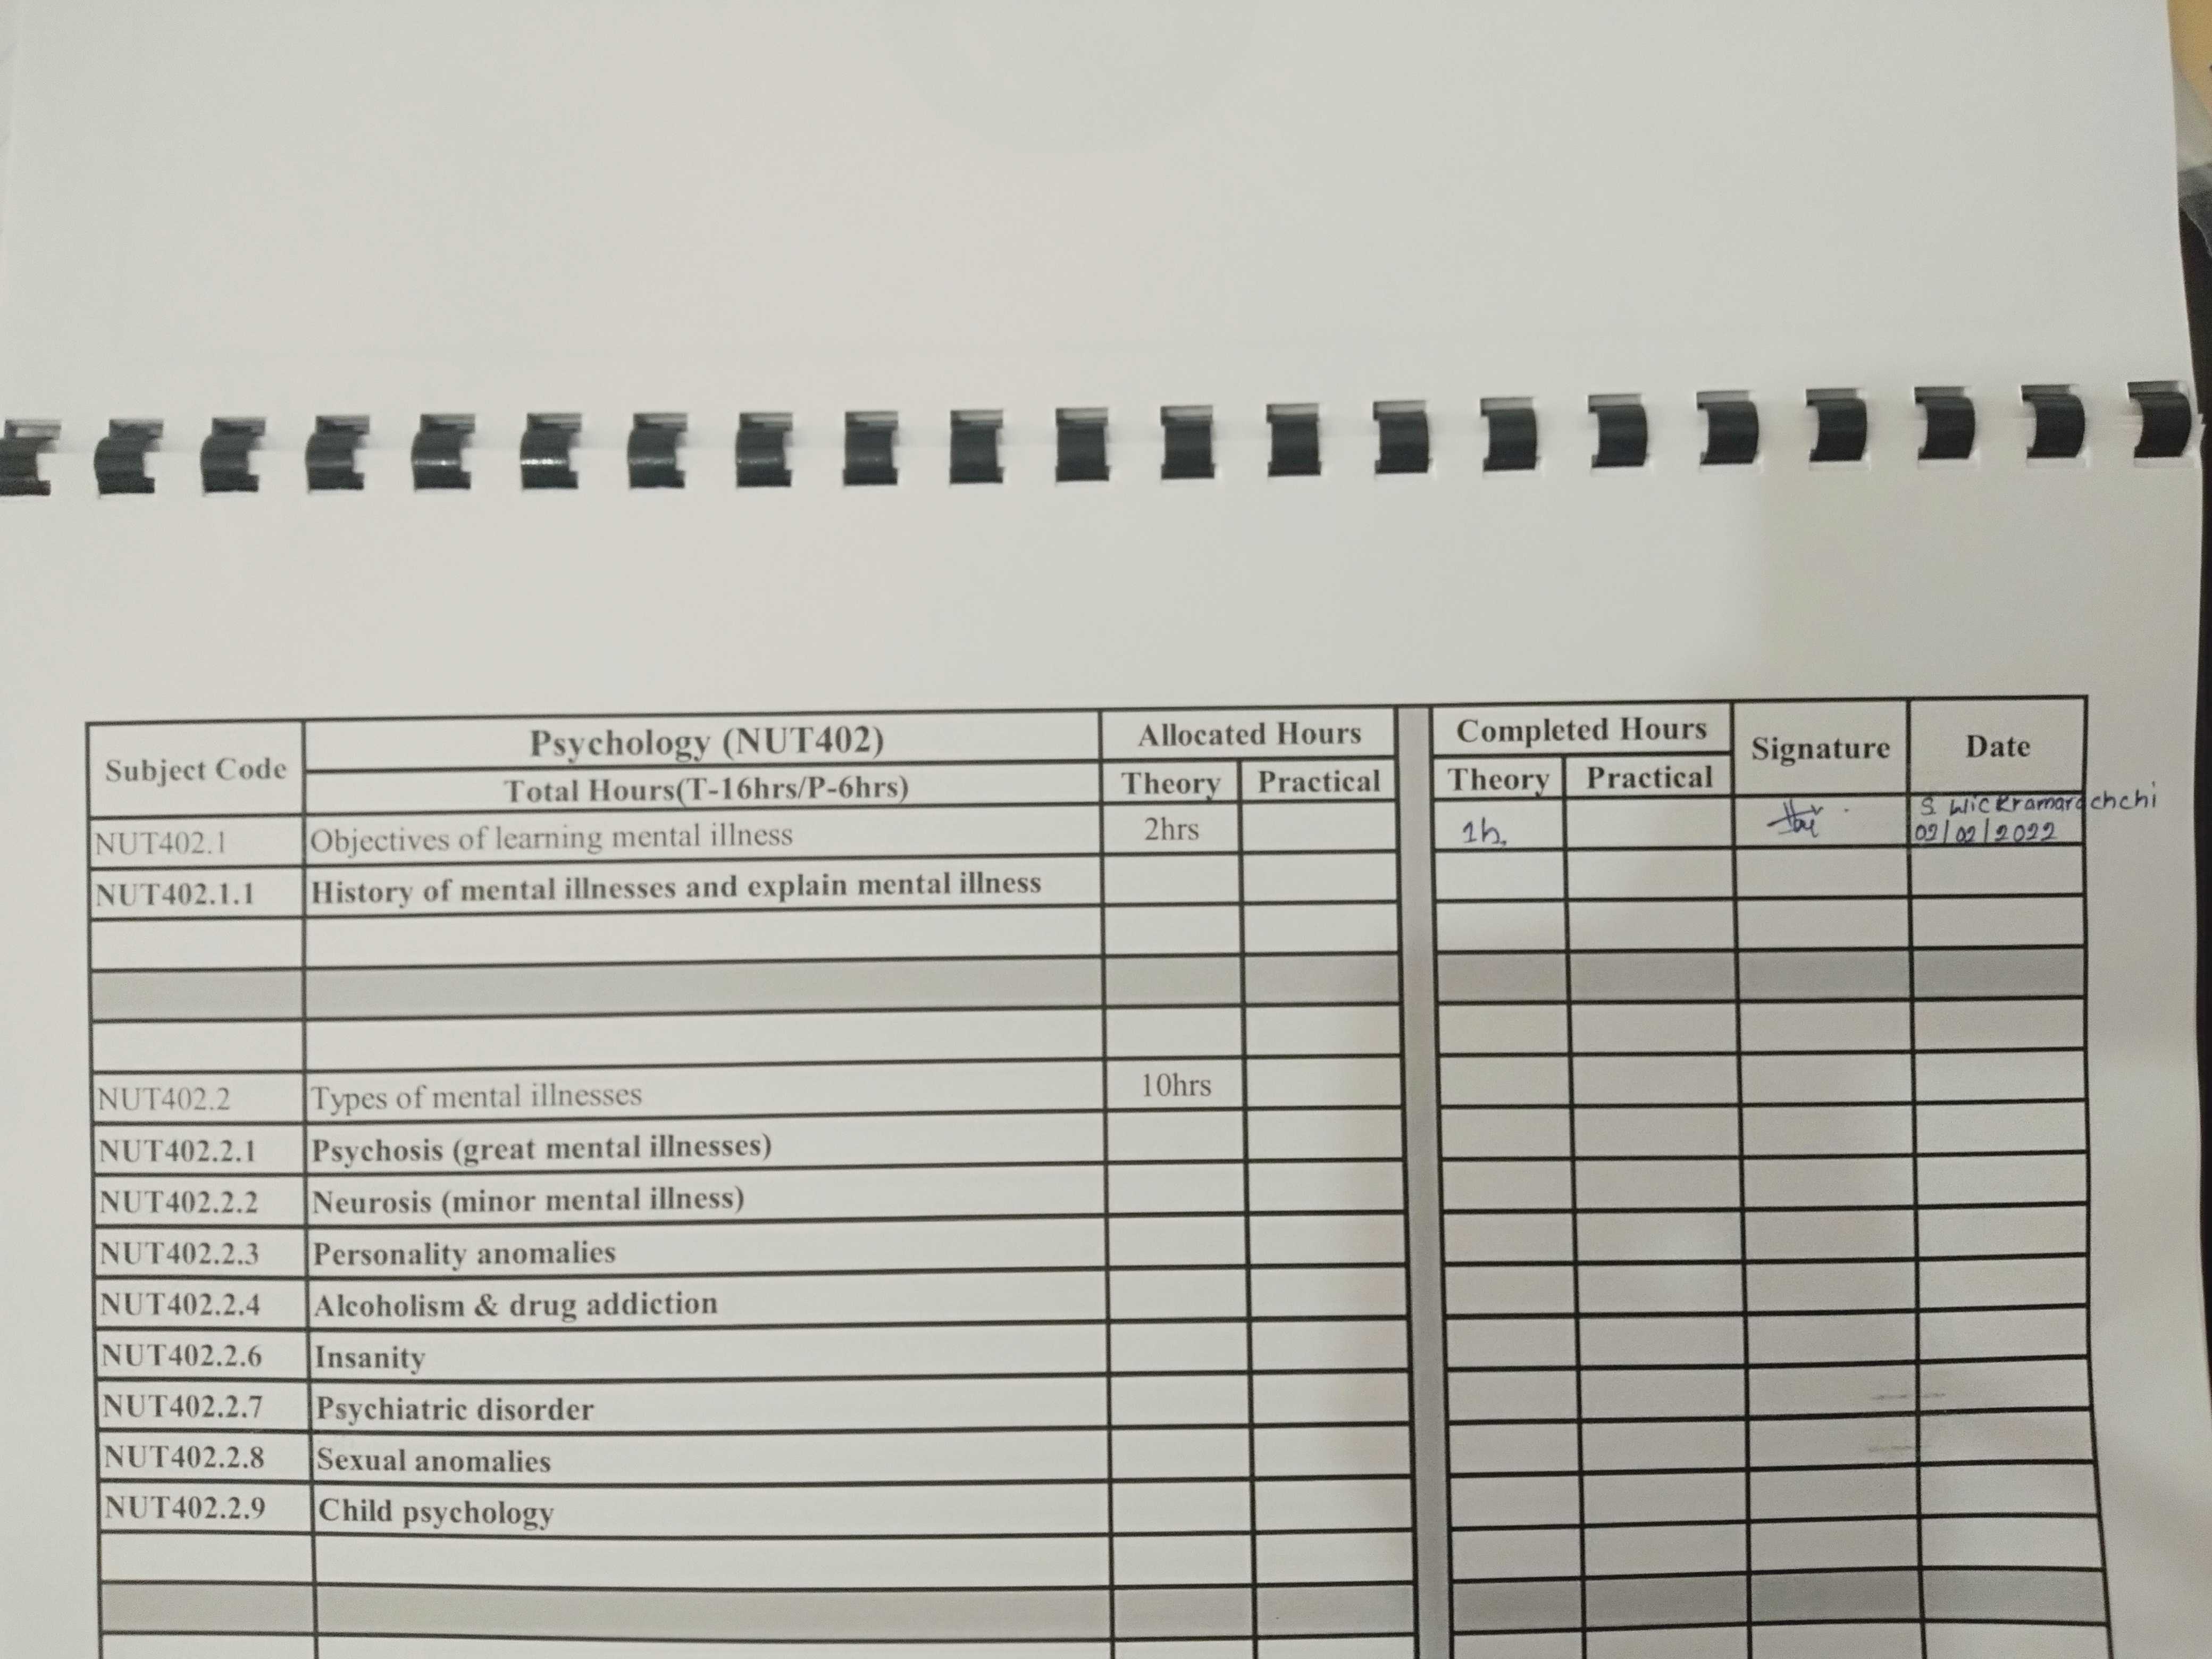 Subject Code
Psychology (NUT402)
Allocated Hours
Completed Hours
Signature
Date
Total Hours(T-16hrs/P-6hrs)
Theory
Practical
Theory
Practical
NUT402.1 Objectives of learning mental illness 2hrs 1h, S Wickramarachchi
02/02/2022
NUT402.1.1 History of mental illnesses and explain mental illness
NUT402.2 Types of mental illnesses 10hrs
NUT402.2.1 Psychosis (great mental illnesses)
NUT402.2.2 Neurosis (minor mental illness)
NUT402.2.3 Personality anomalies
NUT402.2.4 Alcoholism & drug addiction
NUT402.2.6 Insanity
NUT402.2.7 Psychiatric disorder
NUT402.2.8 Sexual anomalies
NUT402.2.9 Child psychology